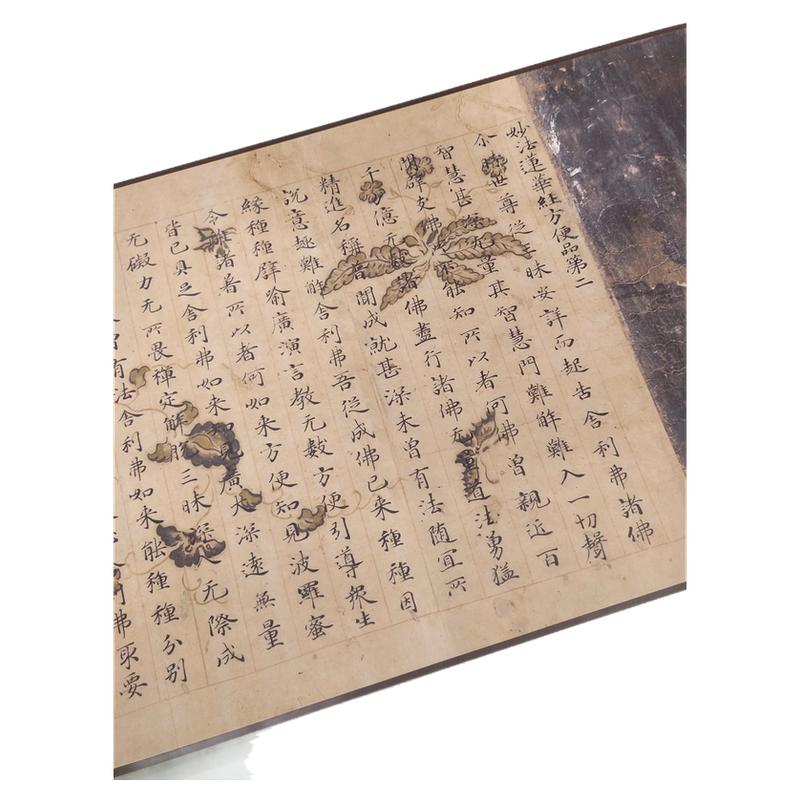 妙法蓮華経方便品第二
尒時世尊従三昧安詳而起告舎利弗諸佛
智慧甚深无量其智慧門難解難入一切聲
聞辟支佛所不能知所以者何佛曽親近百
千万億无數諸佛盡行諸佛无量道法勇猛
精進名稱普聞成就甚深未曽有法随宜所
説意趣難解舎利弗吾従成佛已来種種因
縁種種譬喻廣演言教无數方便引導衆生
令離諸著所以者何如来方便知見波羅蜜
皆已具足舎利弗如来知見廣大深遠無量
无礙力无所畏禪定解脱三昧深入无際成
有法舎利弗如来能種種分別
弗取要